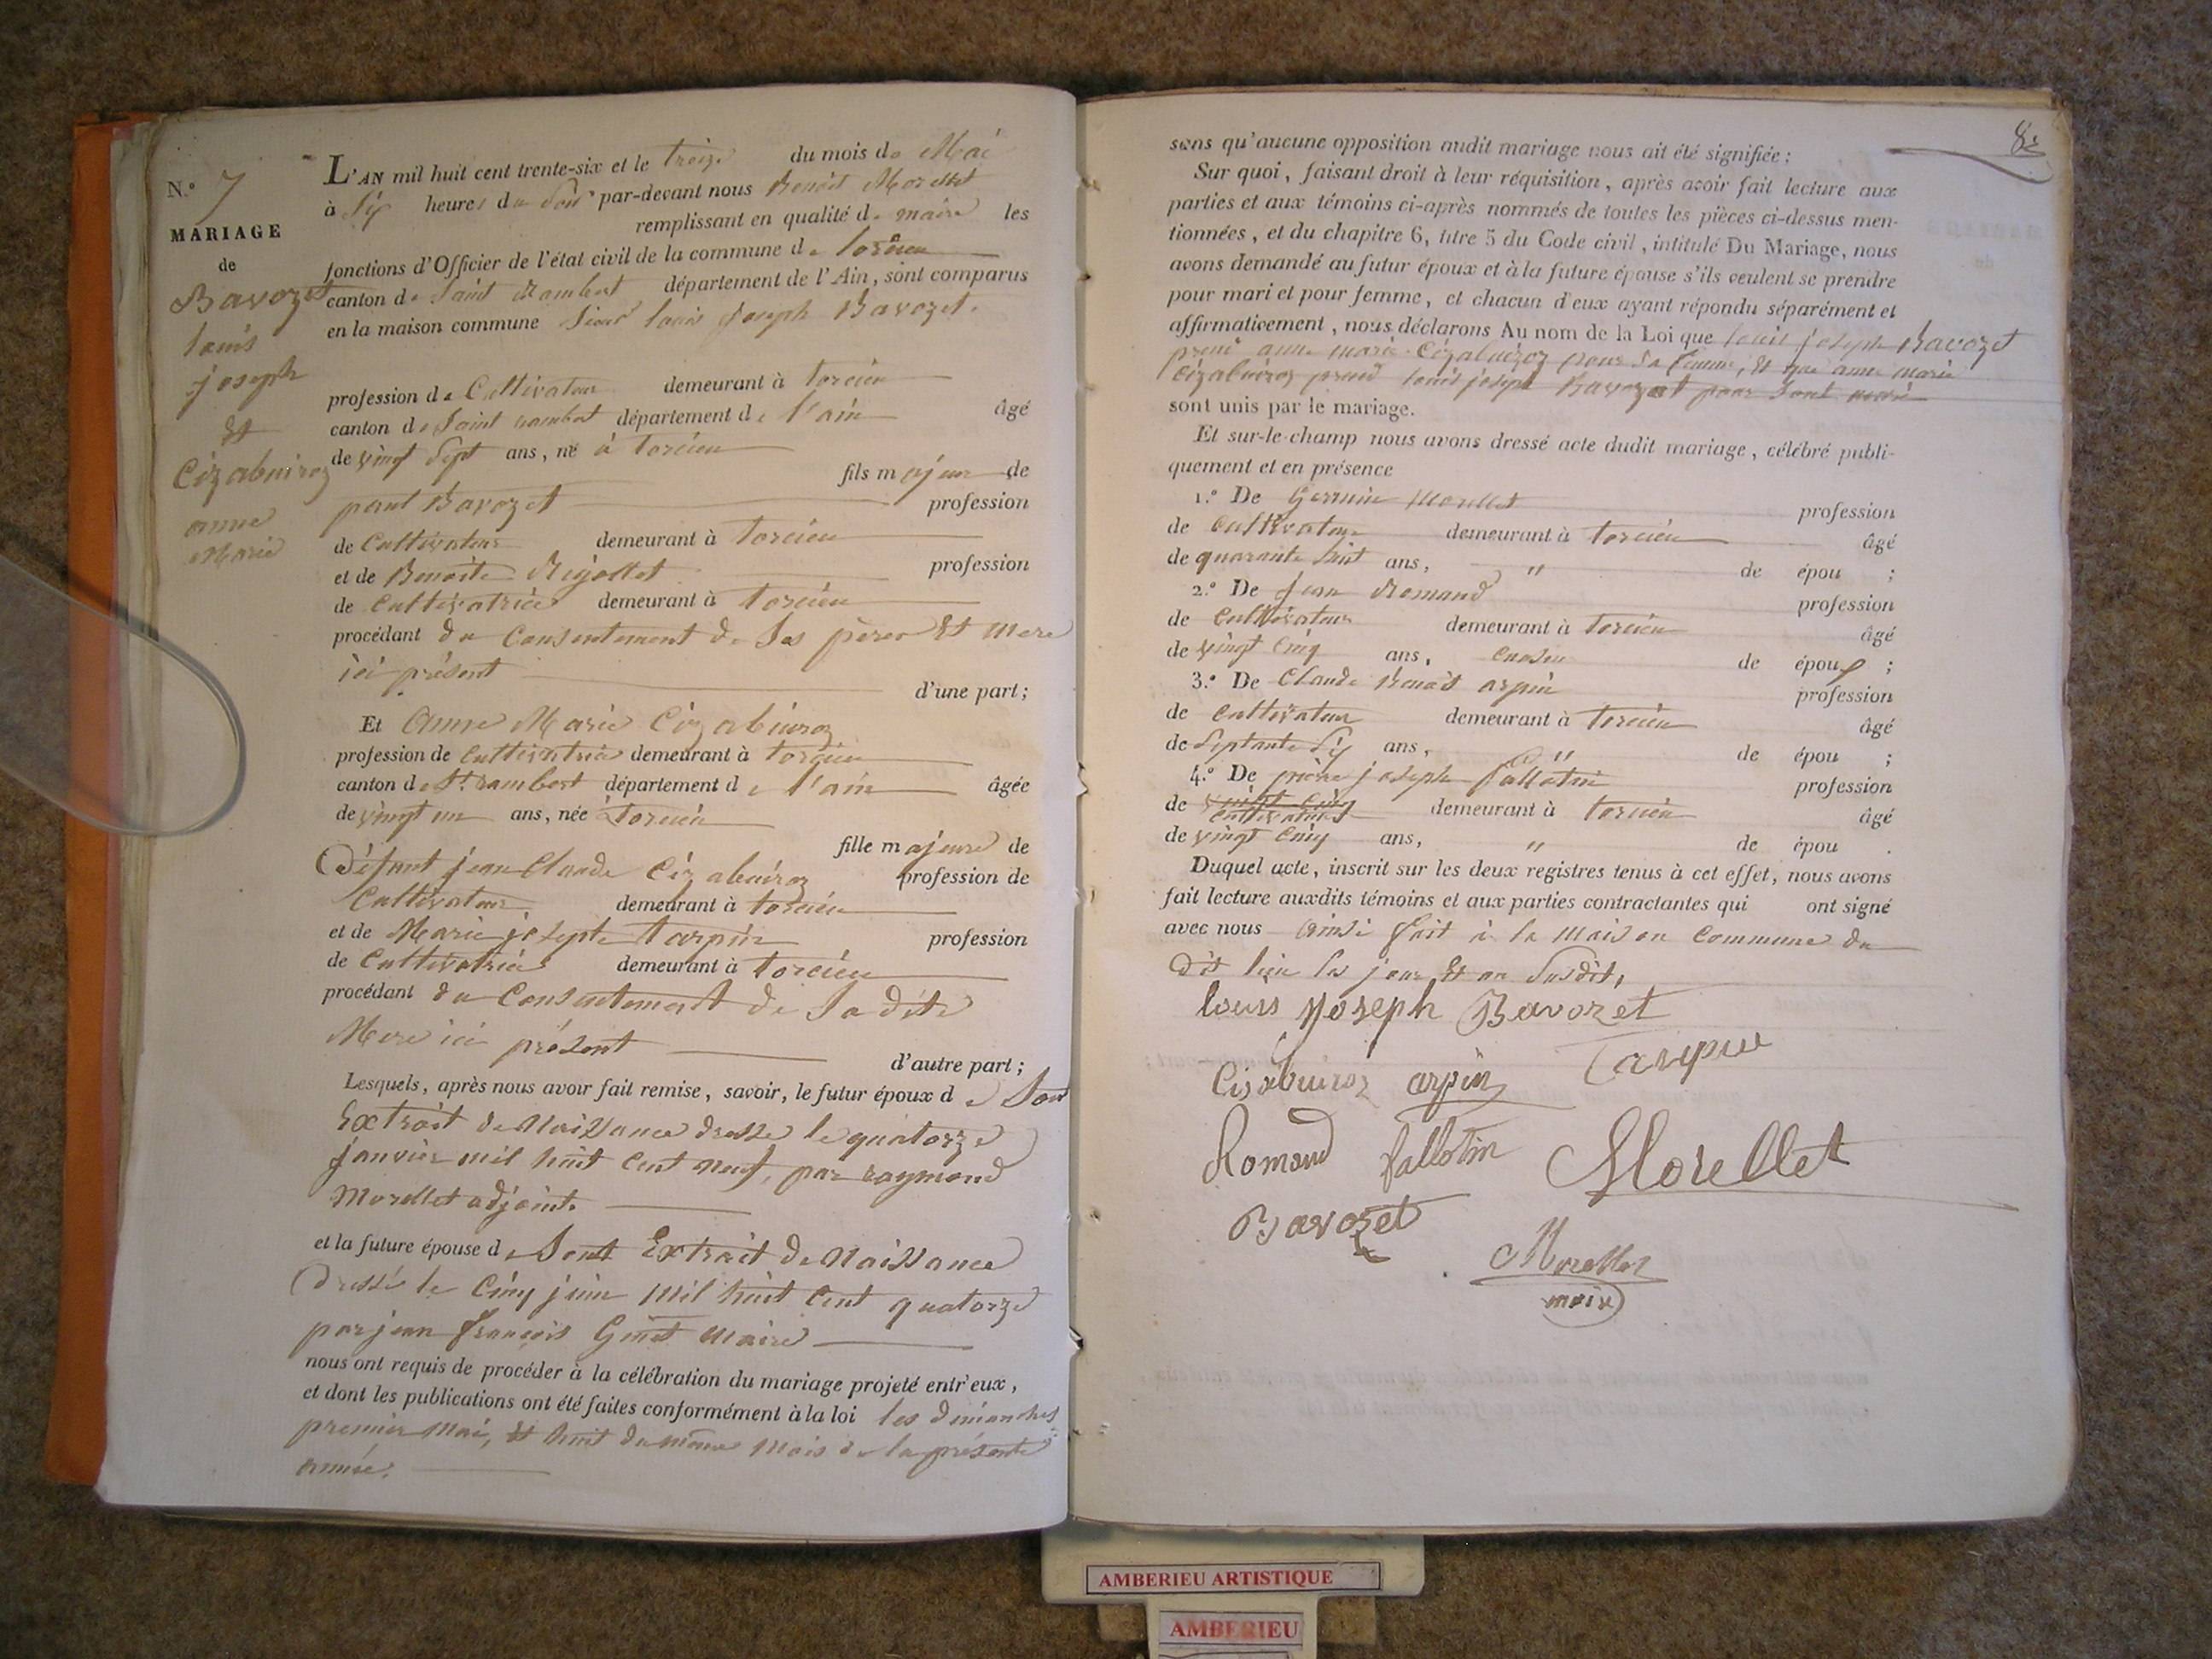 N.° 7
MARIAGE
de
Bavozet
louis
joseph
Et
Cizabuiroz
anne
Marie
L'AN mil huit cent trente-six et le treize du mois de Mai
à Six heures du Soir par-devant nous Benoit Morellet
remplissant en qualité de maire les
fonctions d'Officier de l'état civil de la commune de torcieu
canton de Saint Rambert département de l'Ain, sont comparus
en la maison commune Sieur louis Joseph Bavozet.
profession de Cultivateur demeurant à torcieu
canton de Saint rambert département de l'ain âgé
de vingt Sept ans, né à torcieu
fils majeur de
paul Bavozet profession
de Cultivateur demeurant à torcieu
et de Benoite Rigollet profession
de Cultivatrice demeurant à torcieu
procédant du Consentement de Ses pères Et mere
ici présent
d'une part;
Et Anne Marie Cizabuiroz
profession de Cultivatrice demeurant à torcieu
canton de St. rambert département de l'ain âgée
de vingt un ans, née à torcieu
fille majeure de
Défunt jean Claude Cizabuiroz profession de
Cultivateur demeurant à torcieu
et de Marie josepte tarpin profession
de Cultivatrice demeurant à torcieu
procédant du Consentement de Sa dite
Mere ici présent
d'autre part;
Lesquels, après nous avoir fait remise, savoir, le futur époux de Son
Extrait de Naissance dressé le quatorze
janvier mil huit Cent neuf, par raymond
Morellet adjoint.
et la future épouse de Sont Extrait de Naissance
dressé le Cinq juin Mil huit Cent quatorze
par jean françois Ginet Maire
nous ont requis de procéder à la célébration du mariage projeté entr'eux,
et dont les publications ont été faites conformément à la loi les dimanches
premier Mai, Et huit du même Mois de la présente
année.
8e
sans qu'aucune opposition audit mariage nous ait été signifiée;
Sur quoi, faisant droit à leur réquisition, après avoir fait lecture aux
parties et aux témoins ci-après nommés de toutes les pièces ci-dessus men-
tionnées, et du chapitre 6, titre 5 du Code civil, intitulé Du Mariage, nous
avons demandé au futur époux et à la future épouse s'ils veulent se prendre
pour mari et pour femme, et chacun d'eux ayant répondu séparément et
affirmativement, nous déclarons Au nom de la Loi que louis joseph Bavozet
prend anne marie Cizabuiroz pour Sa femme, Et que anne marie
Cizabuiroz prend louis joseph Bavozet pour Sont mari
sont unis par le mariage.
Et sur-le-champ nous avons dressé acte dudit mariage, célébré publi-
quement et en présence
1.° De Germain Morellet
profession
de Cultivateur demeurant à torcieu âgé
de quarante huit ans, " de épou ;
2.° De Jean Romand
profession
de Cultivateur demeurant à torcieu âgé
de vingt Cinq ans, Cousin de époux ;
3.° De Claude Benoit arpin
profession
de Cultivateur demeurant à torcieu âgé
de Septante Six ans, " de épou ;
4.° De pierre joseph fallotin
profession
de vingt Cinq
Cultivateur demeurant à torcieu âgé
de vingt Cinq ans, " de épou .
Duquel acte, inscrit sur les deux registres tenus à cet effet, nous avons
fait lecture auxdits témoins et aux parties contractantes qui ont signé
avec nous ainsi fait à la Maison Commune du
dit lieu les jour Et an Susdit,
louis Joseph Bavozet
Cisabuiroz arpin Tarpin
Romand fallotin Morellet
Bavozet
Morellet
maire
AMBERIEU ARTISTIQUE
AMBERIEU